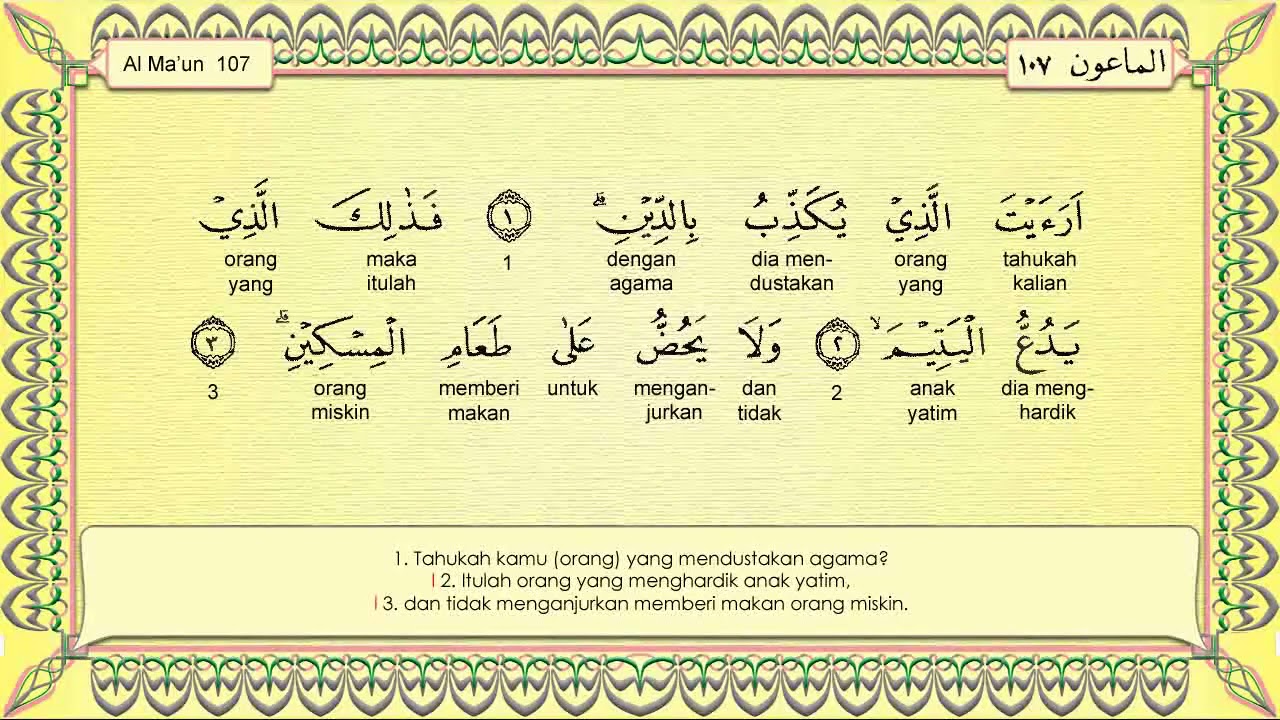 Al Ma'un 107
الماعون ١٠٧
اَرَءَيْتَ الَّذِيْ يُكَذِّبُ بِالدِّيْنِۗ ١ فَذٰلِكَ الَّذِيْ
orang yang maka itulah 1 dengan agama dia men-dustakan orang yang tahukah kalian
يَدُعُّ الْيَتِيْمَۙ ٢ وَلَا يَحُضُّ عَلٰى طَعَامِ الْمِسْكِيْنِۗ ٣
3 orang miskin memberi makan untuk mengan-jurkan dan tidak 2 anak yatim dia meng-hardik
1. Tahukah kamu (orang) yang mendustakan agama?
2. Itulah orang yang menghardik anak yatim,
3. dan tidak menganjurkan memberi makan orang miskin.